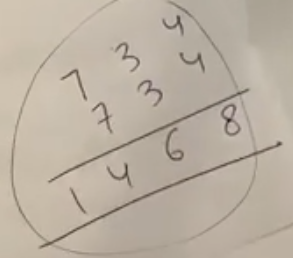 7 3 4
7 3 4
1 4 6 8